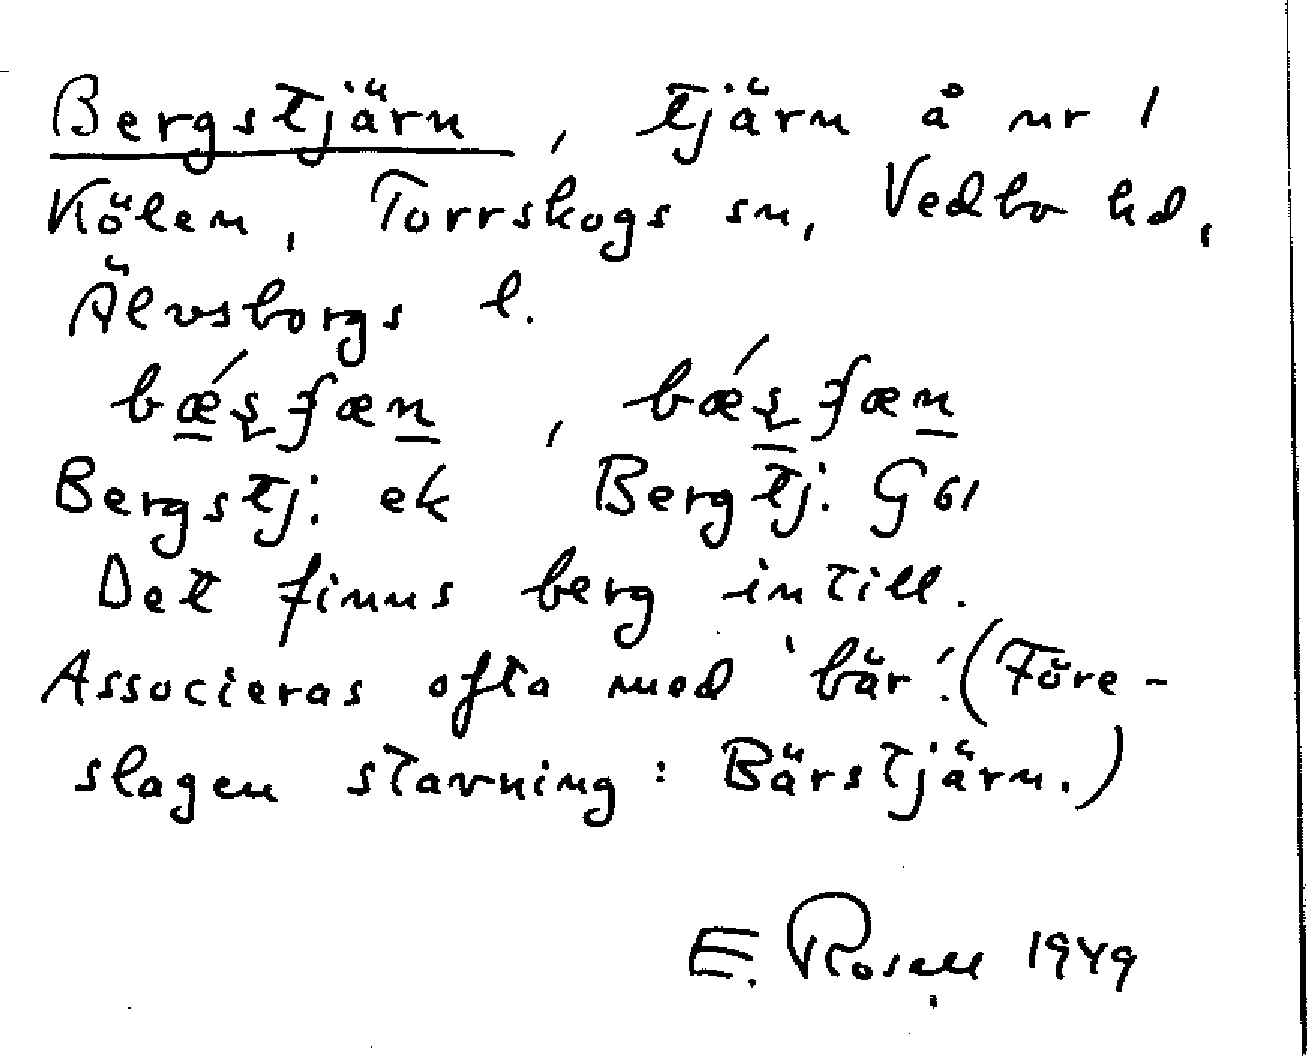 Bergstjärn, tjärn å nr 1
Kölen, Torrskogs sn, Vedbo hd,
Älvsborgs l.
Bergstj: ek Bergtj: G 61
Det finns berg intill.
Associeras ofta med 'bär'. (Före-
slagen stavning: Bärstjärn.)
E. Rosell 1949